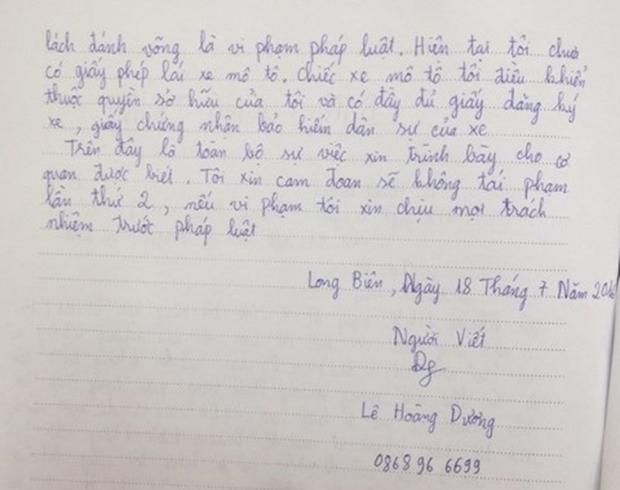 lách đánh võng là vi phạm pháp luật. Hiện tại tôi chưa
có giấy phép lái xe mô tô. Chiếc xe mô tô tôi điều khiển
thuộc quyền sở hữu của tôi và có đầy đủ giấy đăng ký
xe, giấy chứng nhận bảo hiểm dân sự của xe
Trên đây là toàn bộ sự việc xin trình bày cho cơ
quan được biết. Tôi xin cam đoan sẽ không tái phạm
lần thứ 2, nếu vi phạm tôi xin chịu mọi trách
nhiệm trước pháp luật
Long Biên, Ngày 18 Tháng 7 Năm
Người Viết
Dg
Lê Hoàng Dương
0868 96 6699